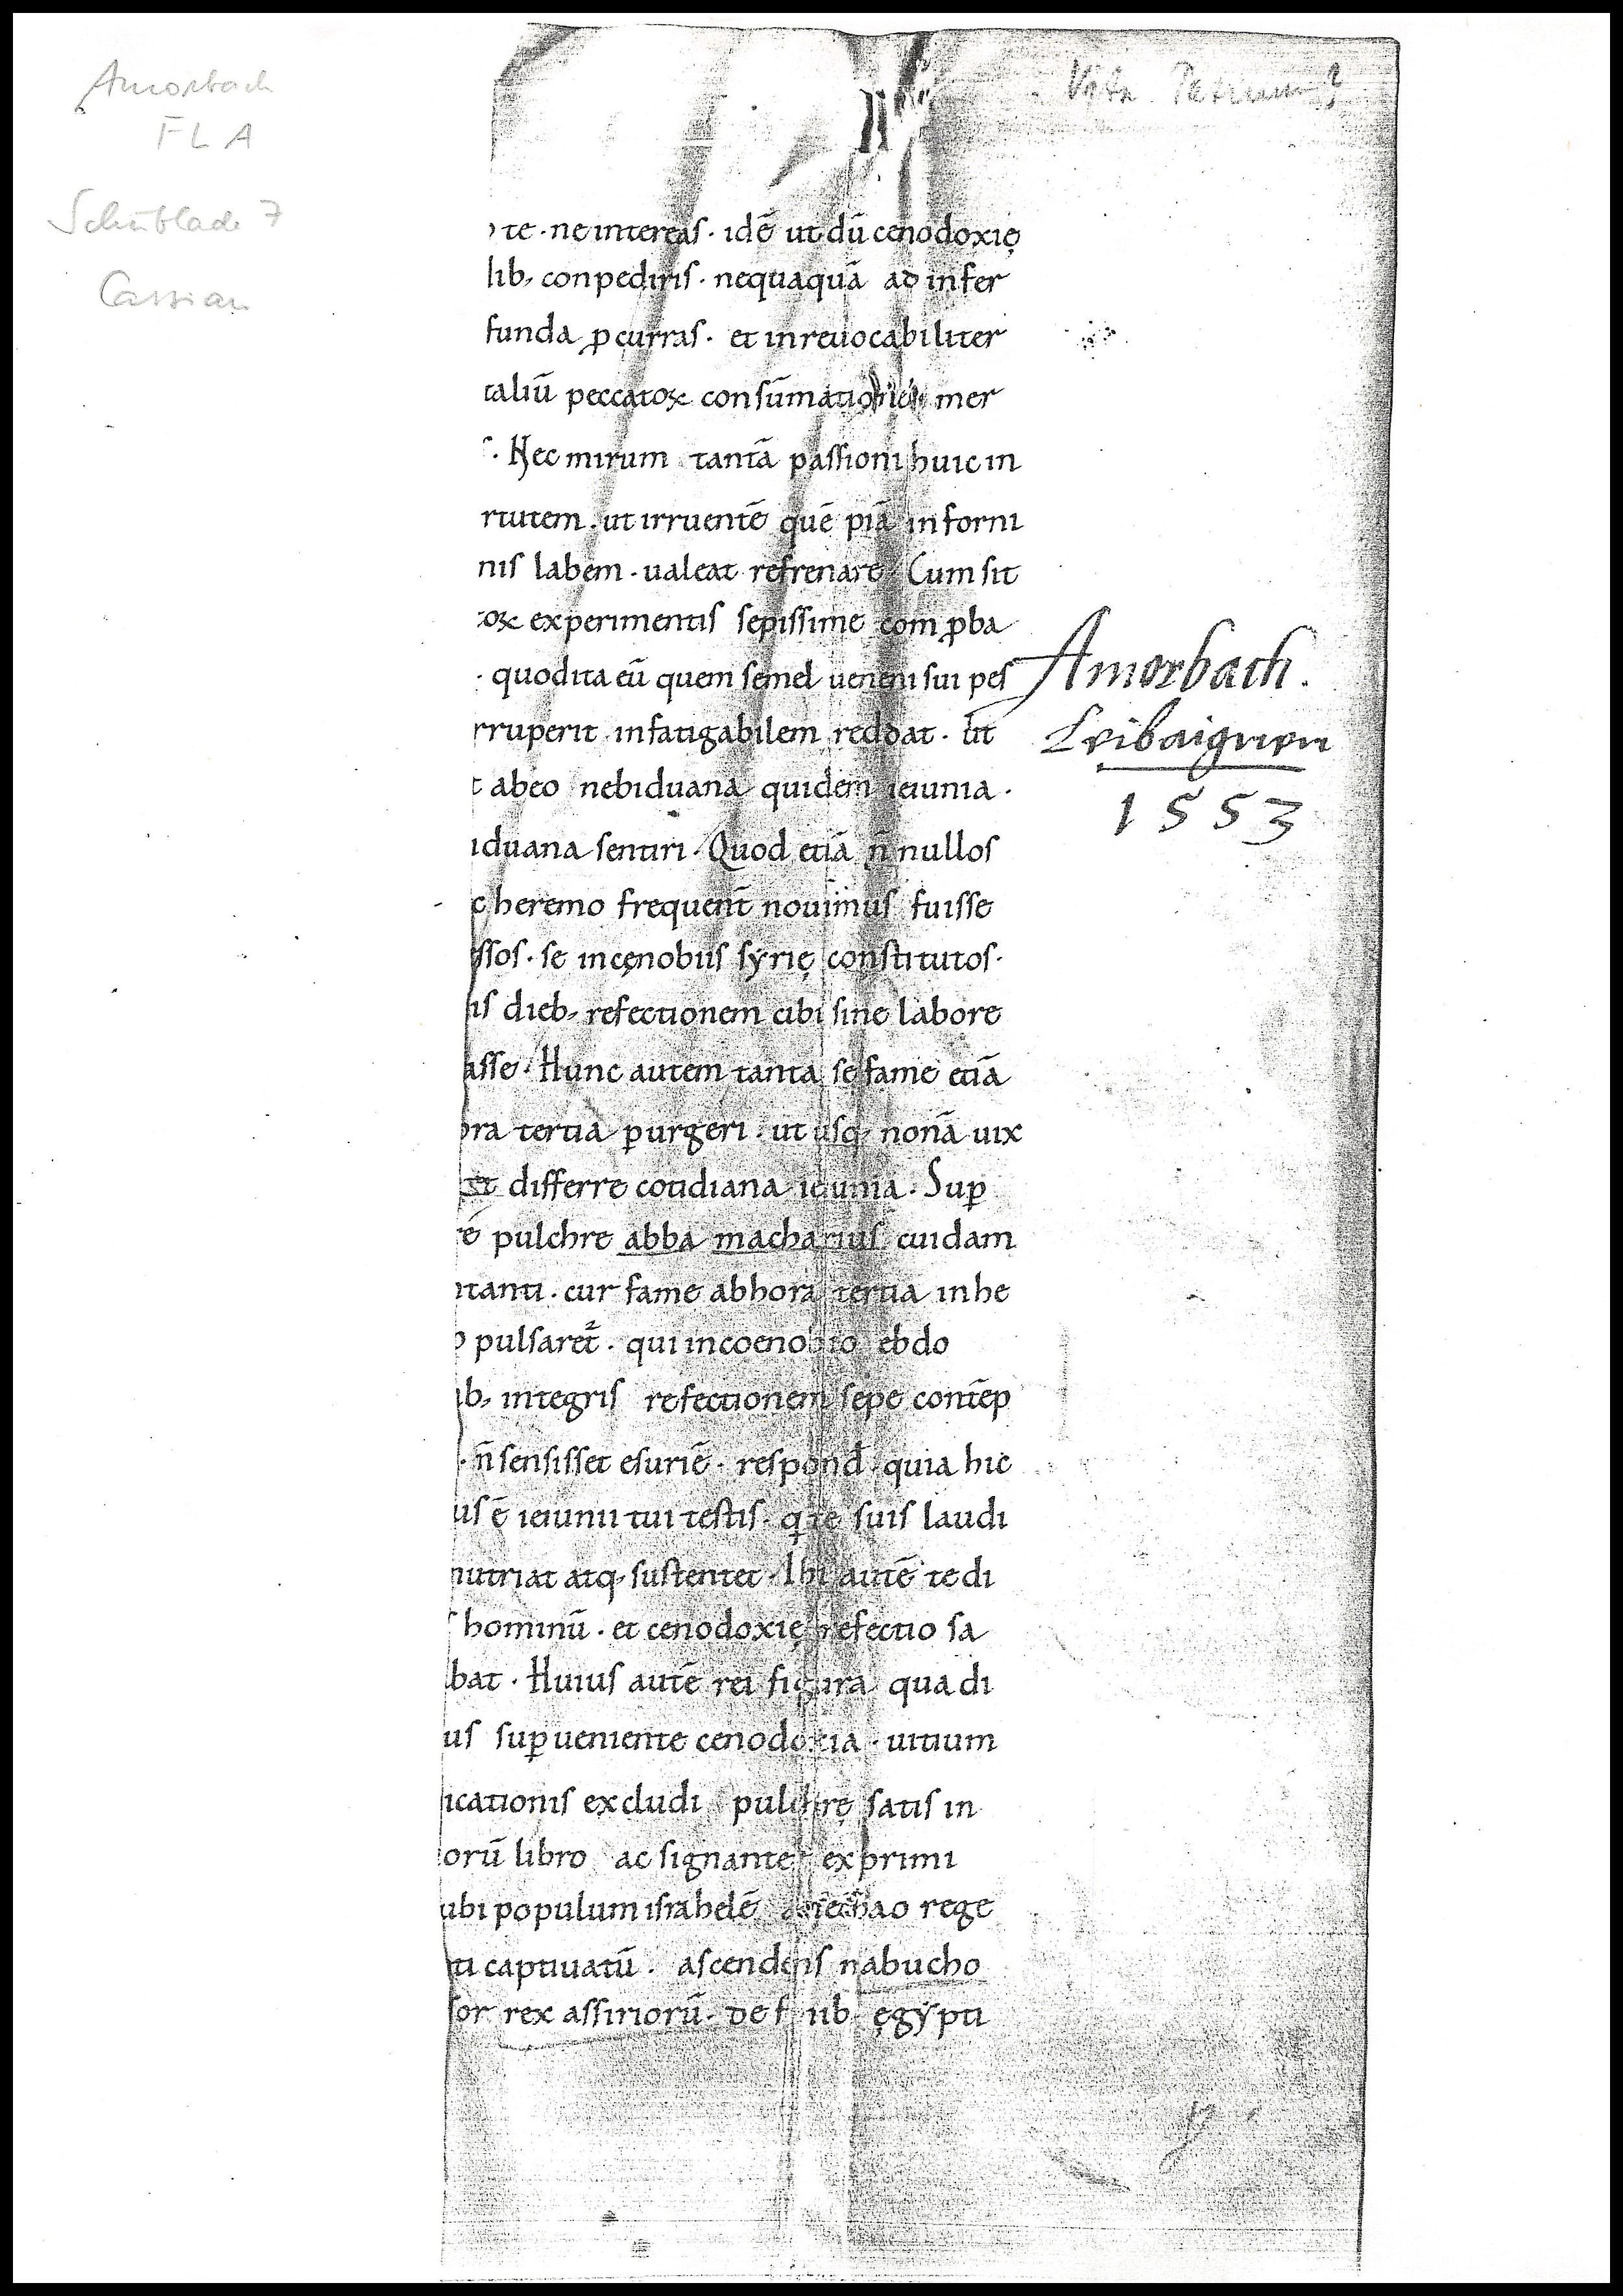 Amorbach
FLA
Schublade 7
Cassian
Vita Patrum?
te · ne intereaſ · idē ut dū cenodoxię
lib, conpediriſ · nequaquā ad infer
funda ꝓcurraſ · et inreuocabiliter
taliū peccatoꝝ conſūmatio mer
· Nec mirum tantā paſſioni huic in
rtutem · ut irruentē quē piā in forni
niſ labem · ualeat refrenare · Cum ſit
oꝝ experimentiſ ſepiſſime com ꝓba
· quodita eū quem ſemel ueneni ſui peſ
rruperit infatigabilem reddat · Ut
t abeo nebiduana quidem ieiunia ·
iduana ſentiri · Quod etiā n̄ nulloſ
c heremo frequent̄ nouimuſ fuiſſe
ſſoſ · ſe incęnobiiſ ſẏrię conſtitutoſ ·
iſ dieb, refectionem cibi ſine labore
aſſe · Hunc autem tanta ſe fame etiā
ora tertia ꝑurgeri · ut uſq, nonā uix
et differre cotidiana ieiunia · Suꝑ
ē pulchre abba machariuſ cuidam
ntanti · cur fame abhora tertia inhe
o pulſaret᷑ · qui incoenobio ebdo
ib, integriſ refectionem ſepe contēp
· n̄ ſenſiſſet eſuriē · reſpond̄ · quia hic
uſ ē ieiunii tui teſtiſ · q te ſuiſ laudi
nutriat atq, ſuſtentet · Ibi autē te di
ſ hominū · et cenodoxię refectio ſa
bat · Huiuſ autē rei figura qua di
uſ ſuꝑueniente cenodoxia · uitium
icationiſ excludi pulchrę ſatiſ in
orū libro ac ſignanter exprimi
ubi populum iſrahelē nechao rege
ti captiuatū · aſcendenſ nabucho
ſor rex aſſiriorū · de f iib ęgẏpti
Amorbach.
Leibaignen
1553